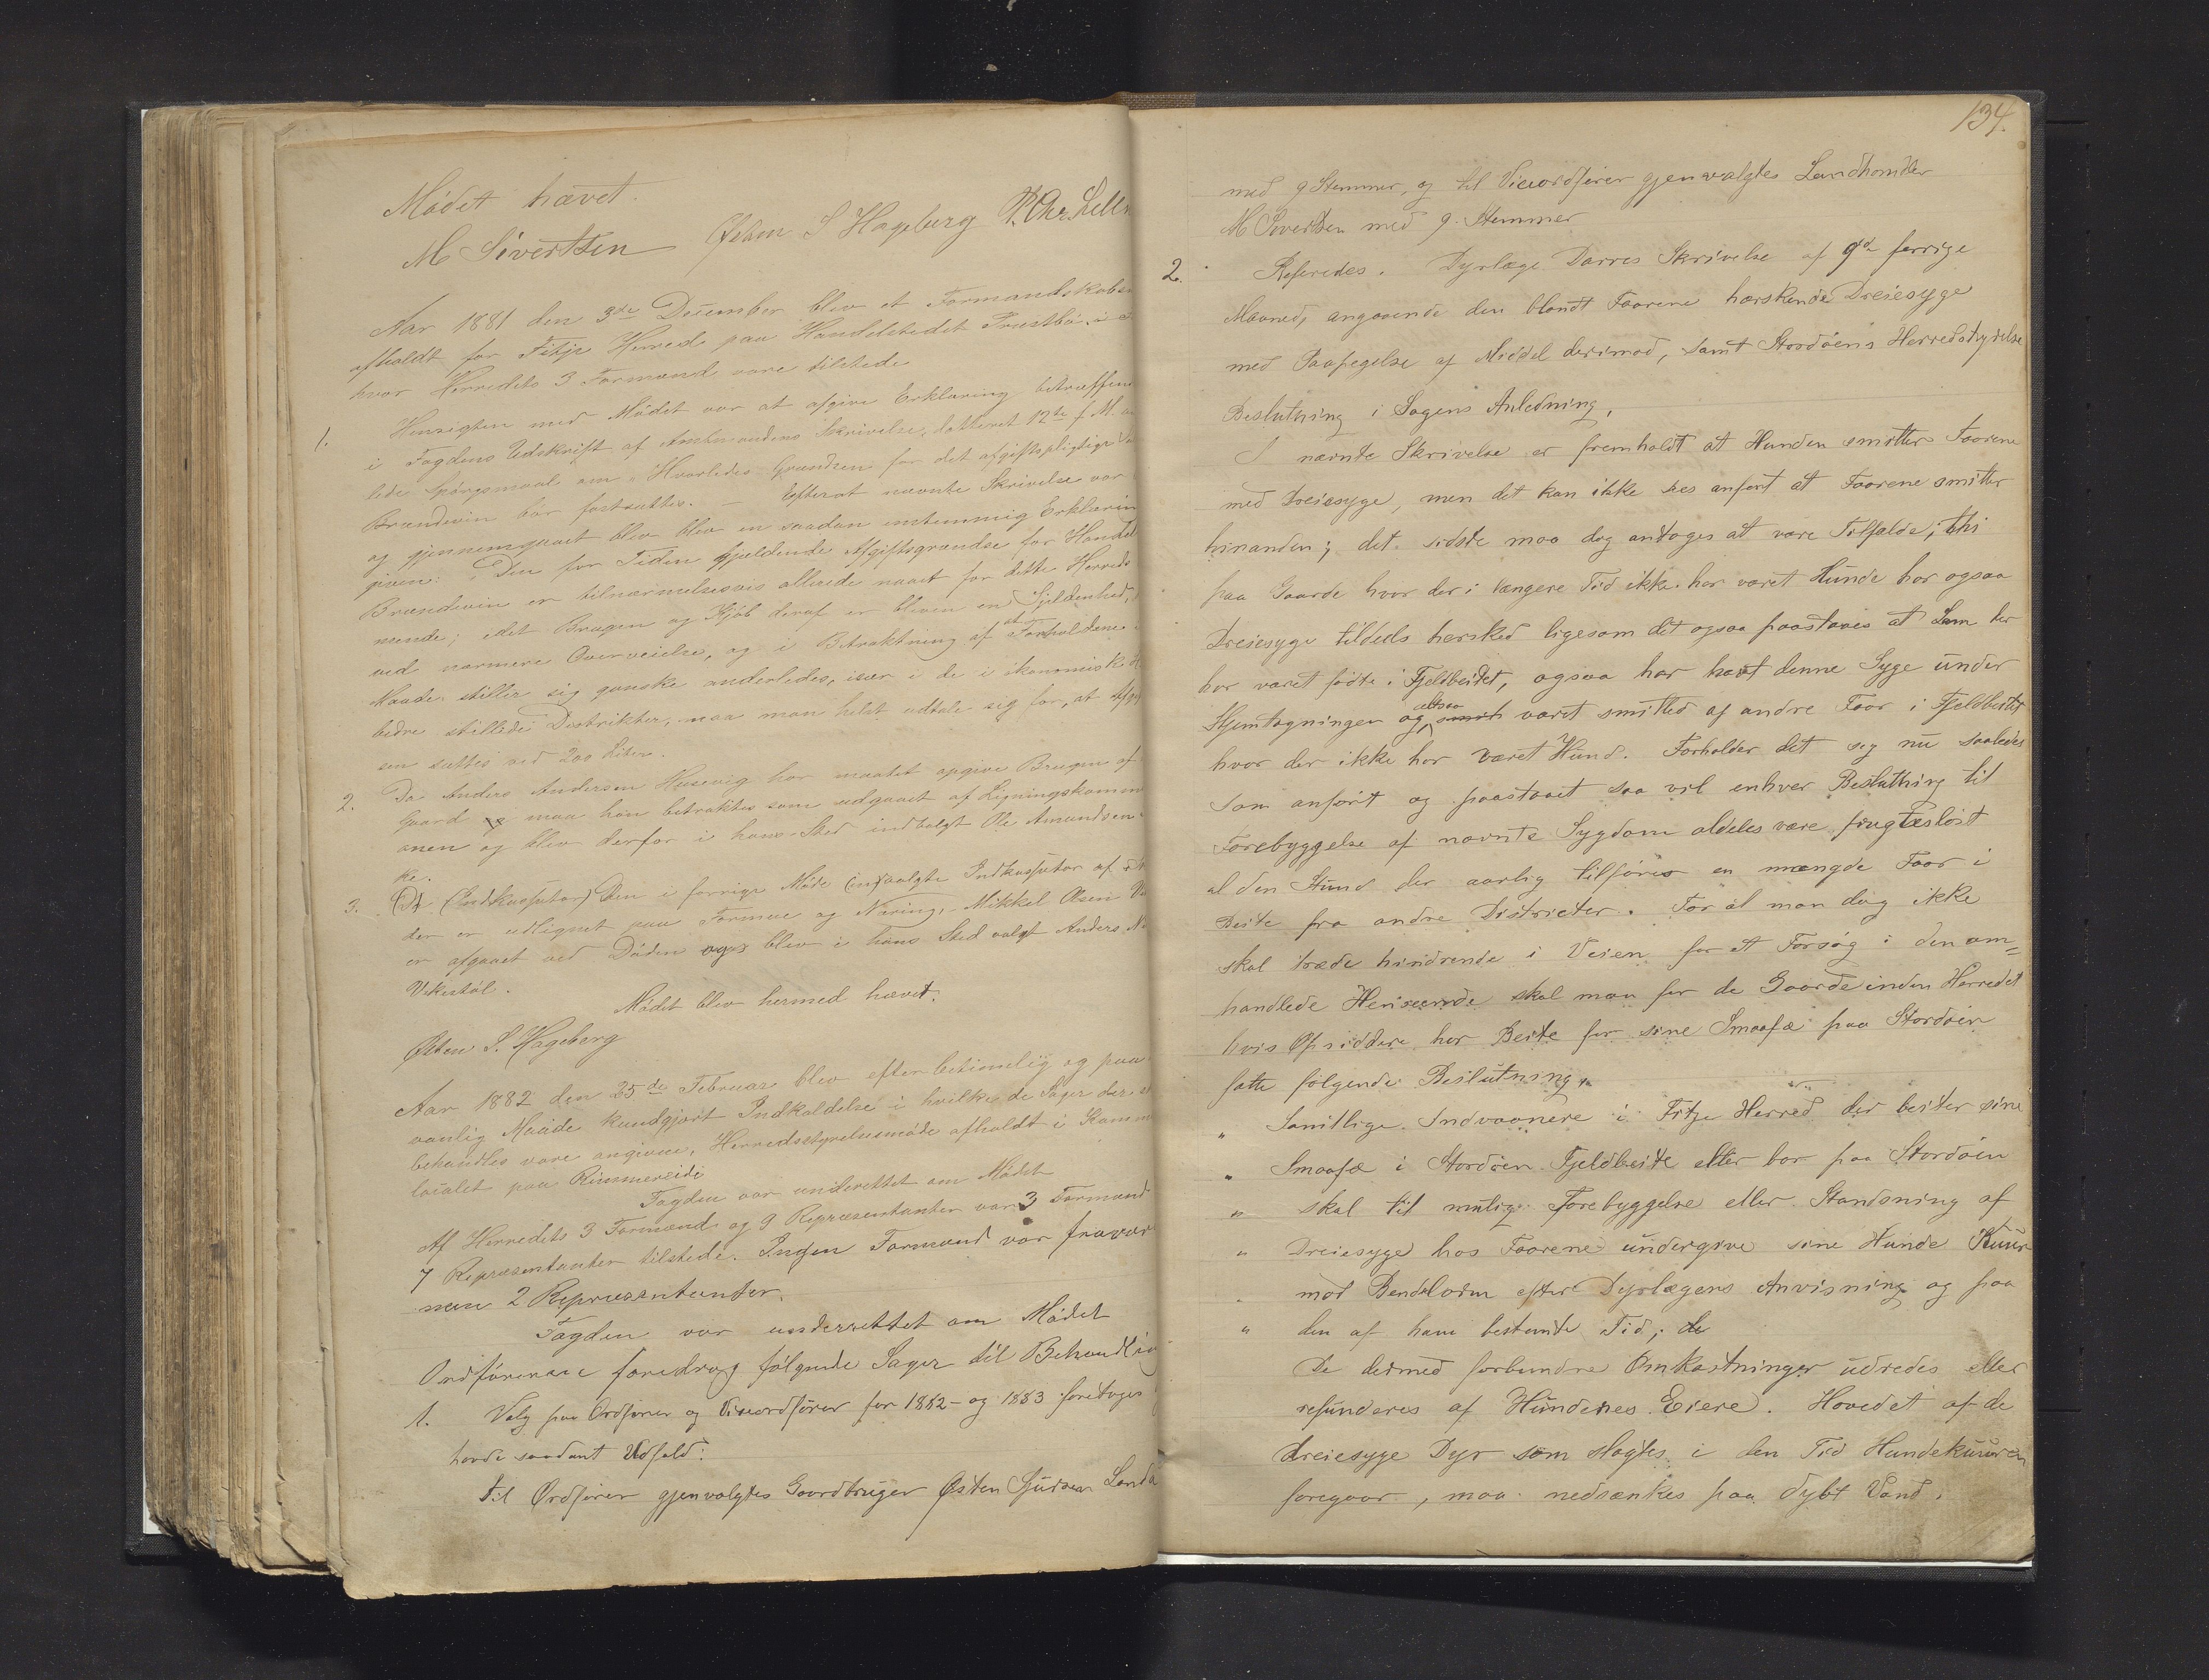 Mödet hævet.
M Sivertsen Østen S Hageberg P. Chr. Lell
Aar 1881 den 3die December blev et Formandskabs
afholdt for Fitje Herred paa Handelstedet Trustbö i
hvor Herredets 3 Formænd vare tilstede
1. Hensigten med Mödet var at afgive Erklæring betræffen
i Fogdens Udskrift af Amtmandens Skrivelse, datteret 12te f. M.
lede Spörgsmaal om "Hvorledes Grændsen for det afgiftspligtige
Brændevin bör fastsættes. — Efterat nævnte Skrivelse var
og gjennemgaaet blev blev en saadan enstemmig Erklærin
given: Den for Tiden gjældende Afgiftsgrændse for Handel
Brændevin er tilnærmelsesvis allerede naaet for dette Herreds
mende; idet Brugen og Kjöb deraf er bleven en Sjeldenhed,
ved nærmere Overveielse, og i Betraktning af at Forholdene
Maade stiller sig ganske anderledes, især i de i ökonomisk H
bedre stillede Distrikter, maa man helst udtale sig for, at Afgi
sen sættes ved 200 Liter.
2. Da Anders Andersen Husevig har maattet opgive Brugen af
Gaard maa han betraktes som udgaaet af Ligningskomm
onen og blev derfor i hans Sted indvalgt Ole Amundsen
ke.
3. (Indkassator) Den i forrige Möde valgte Indkassator af
der er udlignet paa Formue og Næring, Mikkel Olsen
er afgaaet ved Döden og blev i hans Sted valgt Anders
Vikestöl.
Mödet blev hermed hævet.
Østen S. Hageberg
Aar 1882 den 25de Februar blev efter betimelig og paa
vanlig Maade kundgjort Indkaldelse i hvilke de Sager der
behandles vare angivne, Herredsstyrelsesmöde afholdt i Komm
localet paa Rimmereide
Fogden var underrettet om Mödet
Af Herredets 3 Formænd og 9 Repræsentanter var 3 Formænd
7 Repræsentanter tilstede. Ingen Formænd var fravær
men 2 Repræsentanter.
Fogden var underrettet om Mödet
Ordföreren foredrog fölgende Sager til Behandling
1. Valg paa Ordförer og Viceordförer for 1882- og 1883 foretoges
havde saadant Udfald:
Til Ordförer gjenvalgtes Gaardbruger Østen Sjursen Landa
134.
med 9 Stemmer, og til Viceordförer gjenvalgtes Landhandler
M Sivertsen med 9. Stemmer
2. Refereredes. Dyrlæge Darres Skrivelse af 9de forrige
Maaned, angaaende den blandt Faarene herskende Dreiesyge
med Paapegelse af Middel derimod, samt Stordöens Herredsstyrelse
Beslutning i Sagens Anledning.
I nævnte Skrivelse er fremholdt at Hunden smitter Faarene
med Dreiesyge, men det kan ikke sees anfört at Faarene smitter
hinanden; det sidste maa dog antages at være Tilfælde; thi
paa Gaarde hvor der i længere Tid ikke har været Hunde har ogsaa
Dreiesyge tildels hersked ligesom det ogsaa paastaaes at Lam der
har været födte i Fjeldbeitet, ogsaa har havt denne Syge under
Hjemtagningen og altsaa været smitted af andre Faar i Fjeldbeitet
hvor der ikke har været Hund. Forholder det sig nu saaledes
som anfört og paastaaet saa vil enhver Beslutning til
Forebyggelse af nævnte Sygdom aldeles være frugtesløst
al den Stund der aarlig tilföres en mængde Faar i
Beite fra andre Districter. For at man dog ikke
skal træde hindrende i Veien for et Forsög i den om=
handlede Henseende skal man for de Gaarde inden Herredet
hvis Opsiddere har Beite for sine Smaafæ paa Stordöen
fatte fölgende Beslutning.
" Samtlige Indvaanere i Fitje Herred der beiter sine
" Smaafæ i Stordöens Fjeldbeite eller bor paa Stordöen
" skal til mulig Forebyggelse eller Standsning af
" Dreiesyge hos Faarene undergive sine Hunde Kuur
" mod Bendelorm efter Dyrlægens Anvisning og paa
" den af ham bestemte Tid; de
De dermed forbundne Omkostninger udredes eller
refunderes af Hundenes Eiere. Hovedet af de
dreiesyge Dyr som slagtes i den Tid Hundekuuren
foregaar, maa nedsænkes paa dybt Vand.